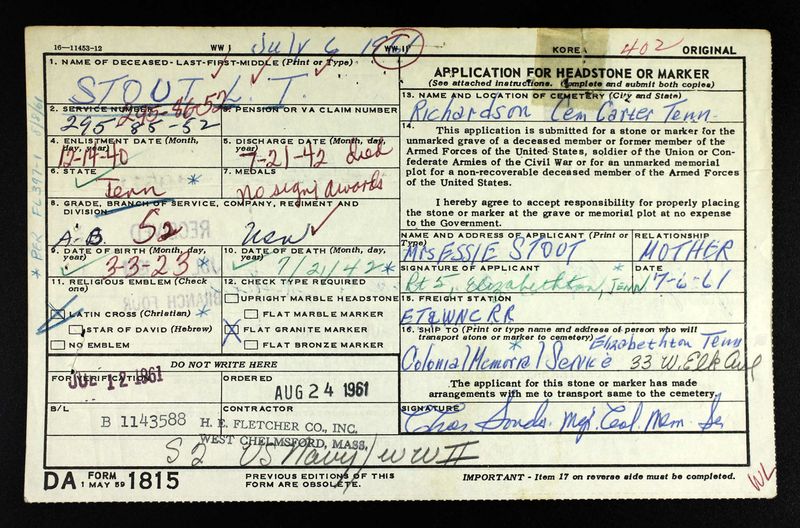 16—11453-12 WW I July 6 1961 WW II KOREA 402 ORIGINAL
1. NAME OF DECEASED-LAST-FIRST-MIDDLE (Print or Type)
STOUT L. I
2. SERVICE NUMBER
295-86-52
295-85-52
3. PENSION OR VA CLAIM NUMBER
4. ENLISTMENT DATE (Month, day, year)
12-14-40
5. DISCHARGE DATE (Month, day, year)
7-21-42 died
6. STATE
Tenn
7. MEDALS
no signi awards
8. GRADE, BRANCH OF SERVICE, COMPANY, REGIMENT AND DIVISION
A.B. S2 USN
9. DATE OF BIRTH (Month, day, year)
3-3-23 *
10. DATE OF DEATH (Month, day, year)
7/21/42 *
11. RELIGIOUS EMBLEM (Check one)
LATIN CROSS (Christian) *
STAR OF DAVID (Hebrew)
NO EMBLEM
12. CHECK TYPE REQUIRED
UPRIGHT MARBLE HEADSTONE
FLAT MARBLE MARKER
X FLAT GRANITE MARKER
FLAT BRONZE MARKER
* PER FL397-1 8/3/61
DO NOT WRITE HERE
FOR VERIFICATION
JUL 12 1961
ORDERED
AUG 24 1961
B/L
B 1143588
CONTRACTOR
H. E. FLETCHER CO., INC.
WEST CHELMSFORD, MASS.
S2 US Navy WW II
APPLICATION FOR HEADSTONE OR MARKER
(See attached instructions. Complete and submit both copies)
13. NAME AND LOCATION OF CEMETERY (City and State)
Richardson Cem Carter Tenn-
14.
This application is submitted for a stone or marker for the
unmarked grave of a deceased member or former member of the
Armed Forces of the United States, soldier of the Union or Con-
federate Armies of the Civil War or for an unmarked memorial
plot for a non-recoverable deceased member of the Armed Forces
of the United States.
I hereby agree to accept responsibility for properly placing
the stone or marker at the grave or memorial plot at no expense
to the Government.
NAME AND ADDRESS OF APPLICANT (Print or Type)
Mrs ESSIE STOUT
RELATIONSHIP
MOTHER
SIGNATURE OF APPLICANT *
Rt 5, Elizabethton, Tenn
DATE
7-6-61
15. FREIGHT STATION
ET&WNC RR
16. SHIP TO (Print or type name and address of person who will
transport stone or marker to cemetery) Elizabethton Tenn
Colonial Memorial Service 33 W. Elk Ave
The applicant for this stone or marker has made
arrangements with me to transport same to the cemetery.
SIGNATURE
Mgr. Col. Mem. Se
DA FORM 1 MAY 59 1815
PREVIOUS EDITIONS OF THIS
FORM ARE OBSOLETE.
IMPORTANT - Item 17 on reverse side must be completed.
WL